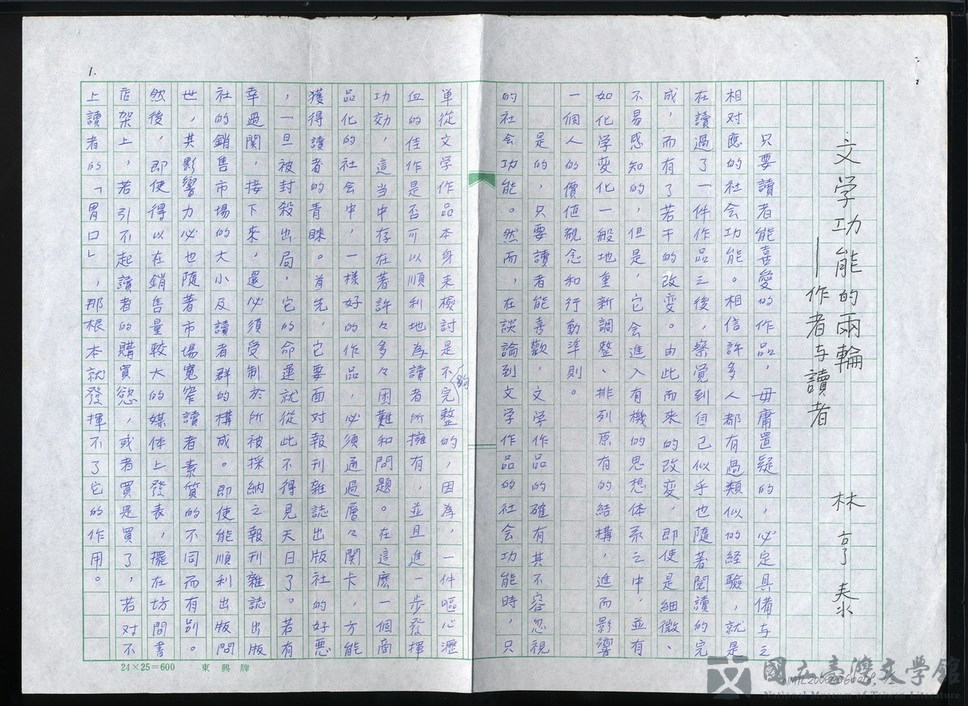 文学功能的兩輪
——作者与讀者
林亨泰
只要讀者能喜愛的作品，毋庸置疑的，必定具備与之
相对應的社会功能。相信許多人都有過類似的経驗，就是
在讀過了一件作品之後，察覚到自己似乎也隨著閱讀的完
成，而有了若干的改变。由此而來的改变，即使是細微、
不易感知的，但是，它会進入有機的思想体系之中，並有
如化学变化一般地重新調整、排列原有的結構，進而影響
一個人的價值観念和行動準則。
是的，只要讀者能喜歡，文学作品的確有其不容忽視
的社会功能。然而，在談論到文学作品的社会功能時，只
單從文学作品本身来檢討是不夠完整的，因為，一件嘔心瀝
血的佳作是否可以順利地為讀者所擁有，並且進一步發揮
功効，這当中存在著許々多々困難和問題。在這麽一個商
品化的社会中，一樣好的作品，必須通過層々関卡，方能
獲得讀者的青睞。首先，它要面对報刊雜誌出版社的好惡
，一旦被封殺出局，它的命運就從此不得見天日了。若有
幸過関，接下來，還必須受制於所被採納之報刊雜誌出版
社的銷售市場的大小及讀者群的構成。即使能順利出版問
世，其影響力必也隨著市場寬窄讀者素質的不同而有別。
然後，即使得以在銷售量較大的媒体上發表，擺在坊間書
店架上，若引不起讀者的購買慾，或者買是買了，若对不
上讀者的「胃口」，那根本就發揮不了它的作用。
1.
24×25=600 東興牌
國立臺灣文學館
National Museum of Taiwan Literature